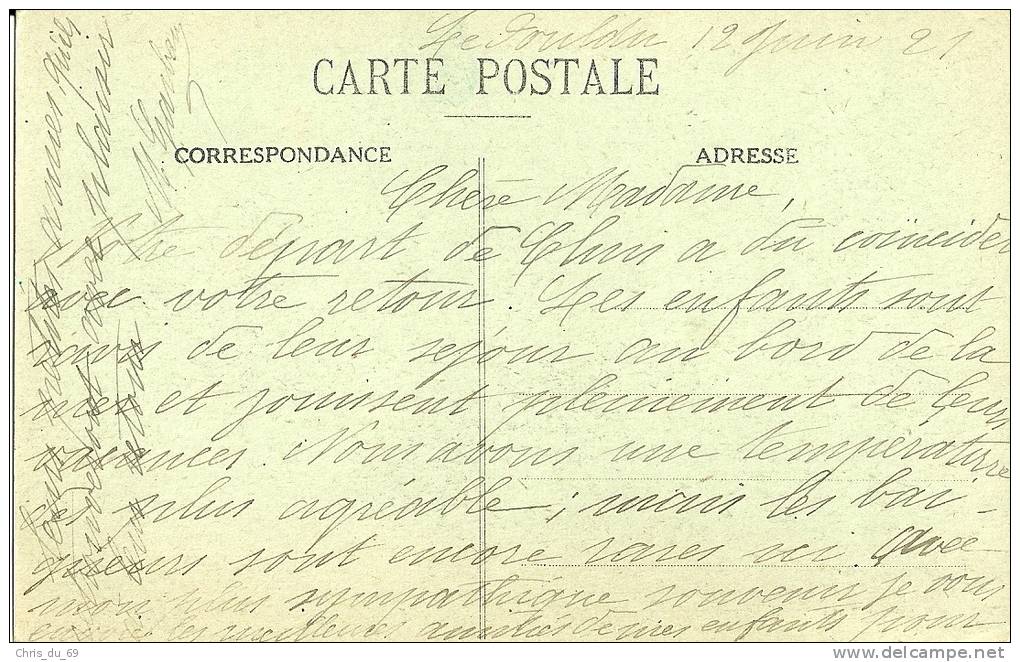 Le Pouldu 12 Juin 21
CARTE POSTALE
CORRESPONDANCE
ADRESSE
Chère Madame,
Votre départ de Cluis a dû coïncider
avec votre retour. Les enfants sont
ravis de leur séjour au bord de la
mer et jouissent pleinement de leurs
vacances. Nous avons une température
des plus agréable; mais les bai-
gneurs sont encore rares ici avec
mon plus sympathique souvenir je vous
envoie les meilleures amitiés de mes enfants pour
vous
plaisir
M.
Chris_du_69
www.delcampe.net